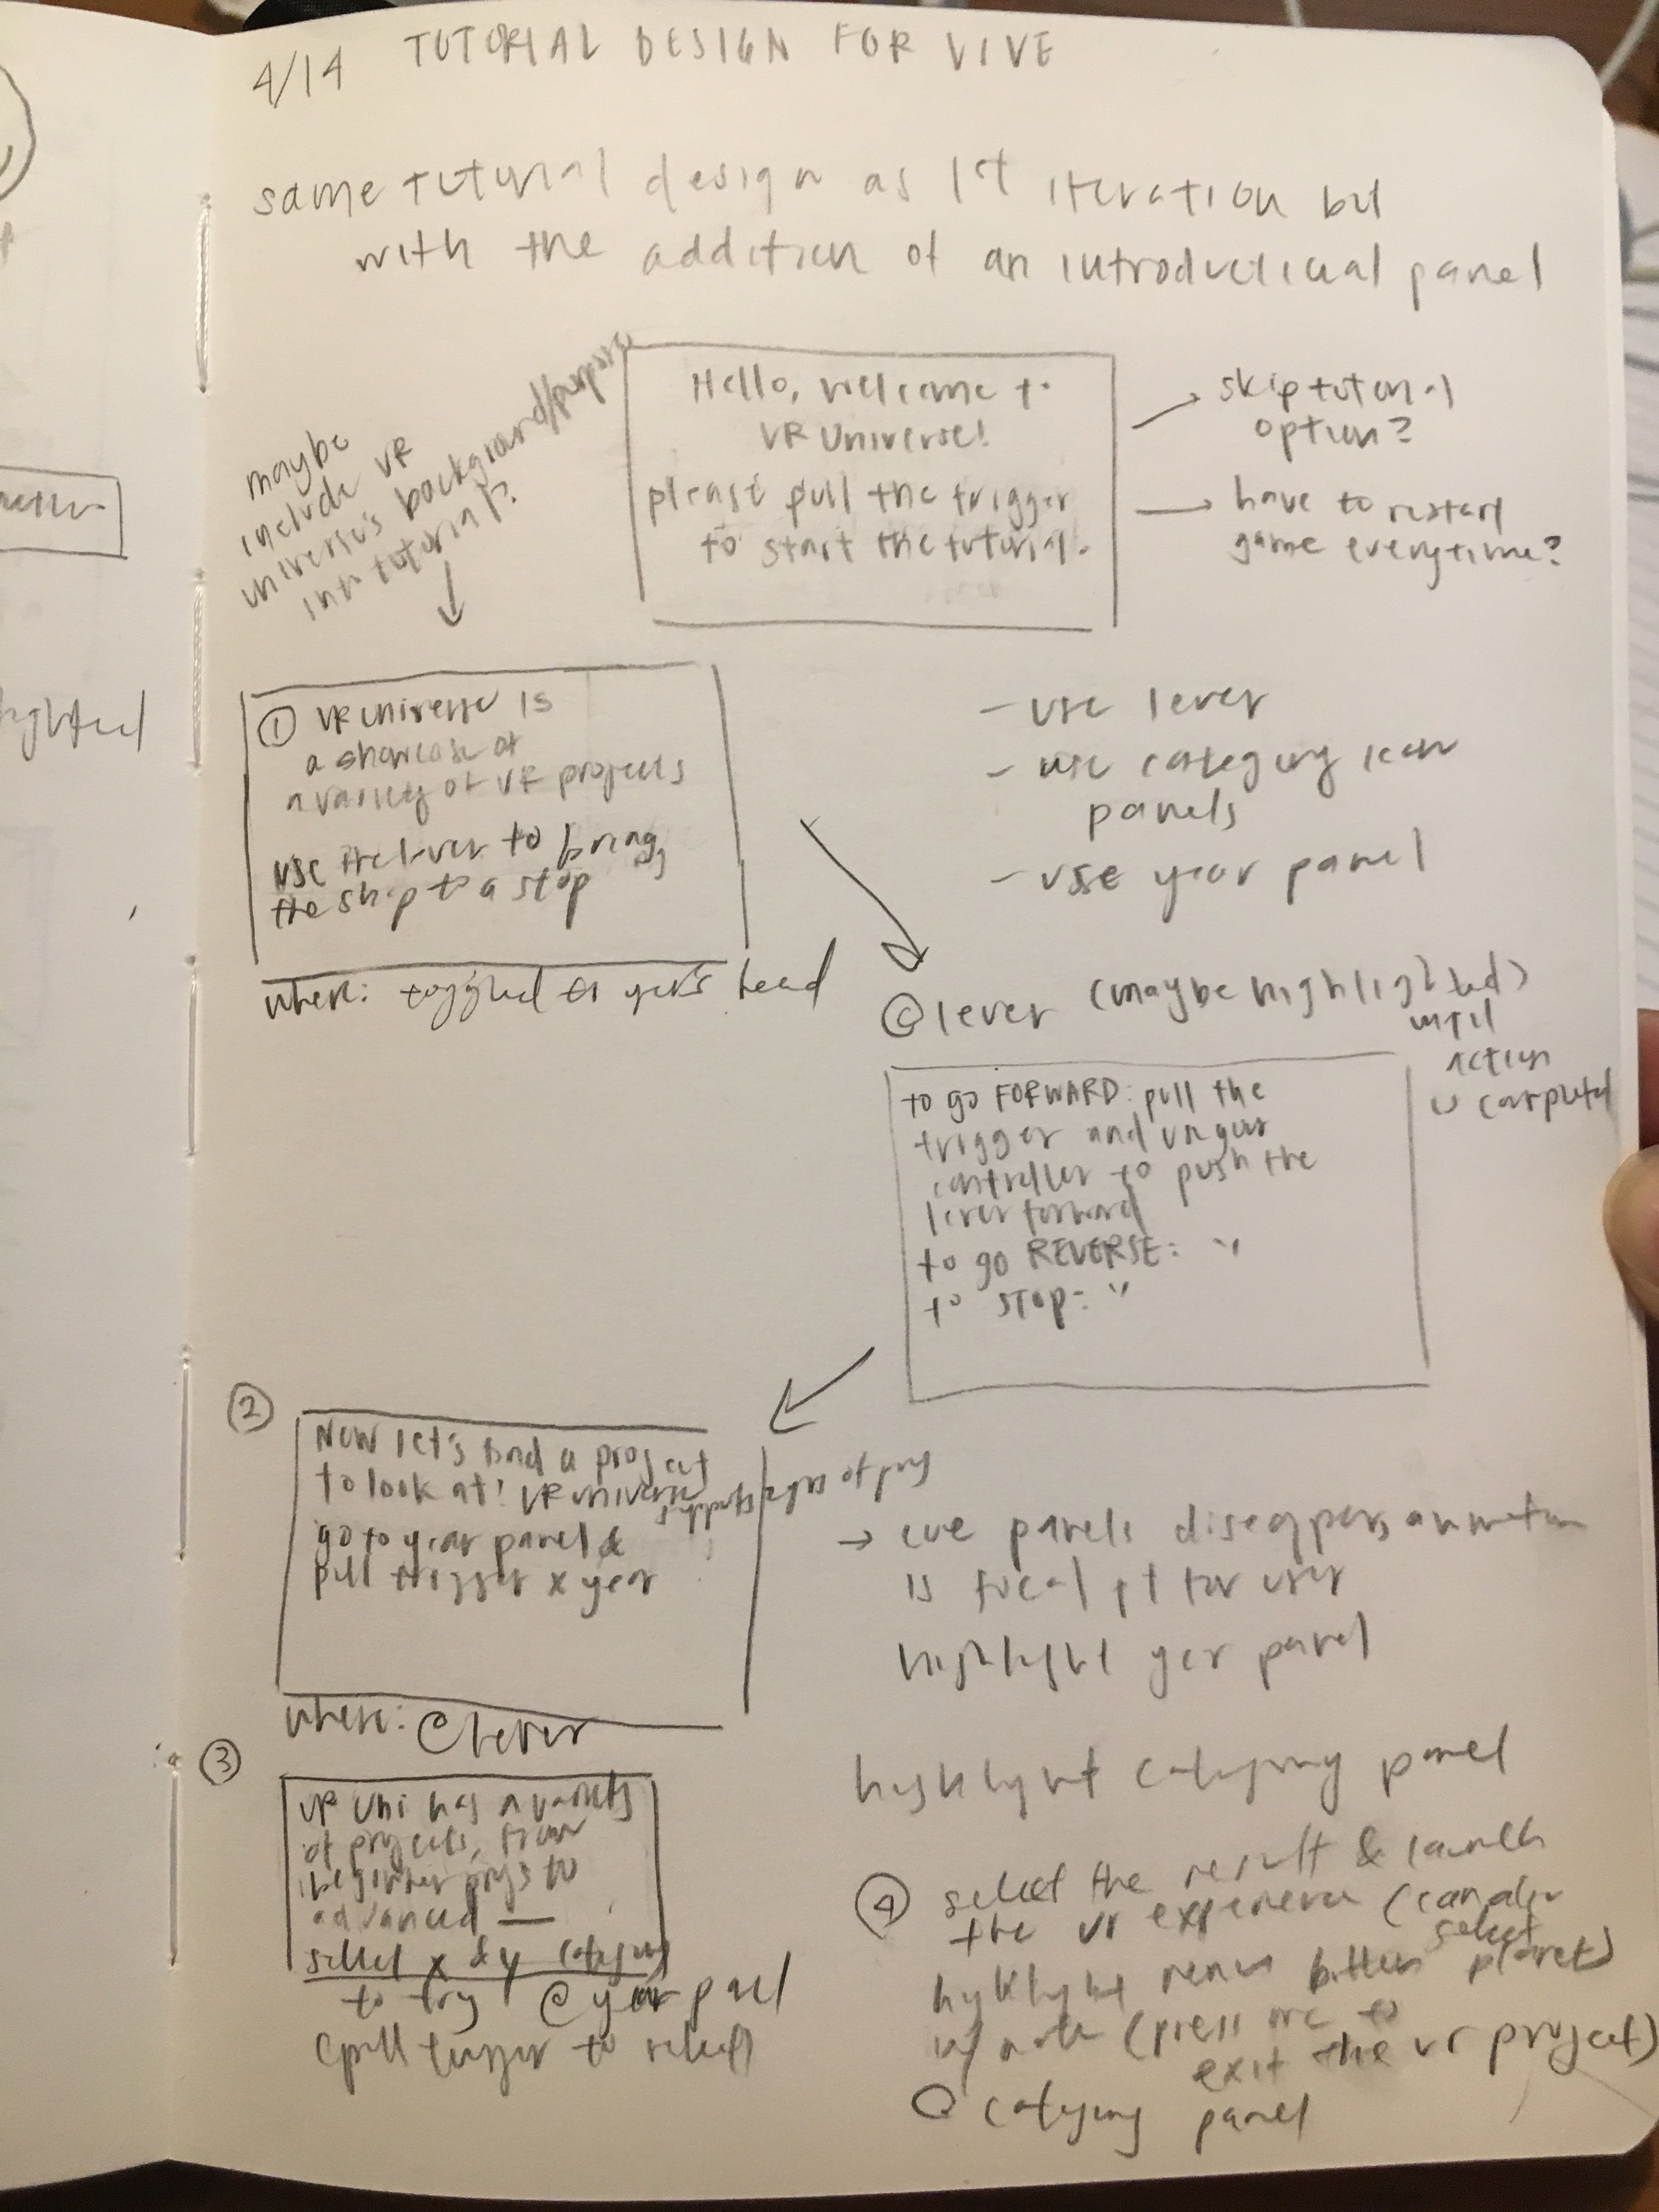 4/14 TUTORIAL DESIGN FOR VIVE
same tutorial design as 1st iteration but
with the addition of an introductional panel
maybe
include VR
universe's background/purpose
into tutorial?
Hello, welcome to
VR Universe!
please pull the trigger
to start the tutorial.
skip tutorial
option?
have to restart
game everytime?
① VR universe is
a showcase of
a variety of VR projects
use the lever to bring
the ship to a stop
where: toggled to user's head
- use lever
- use category icon
panels
- use year panel
@ lever (maybe highlighted)
until
action
is completed
to go FORWARD: pull the
trigger and use your
controller to push the
lever forward
to go REVERSE: "
to STOP: "
②
Now let's find a project
to look at! VR universe
supports types of proj
go to year panel &
pull trigger x year
where: @ lever
→ cue panels disappear, animation
is focal pt for user
highlight year panel
③
VR Uni has a variety
of projects, from
beginner projs to
advanced —
select x & y category
to try @ year panel
(pull trigger to select)
highlight category panel
④ select the result & launch
the vr experience (can also
select
highlight menu button planet)
w/ note (press me to
exit the vr project)
@ category panel